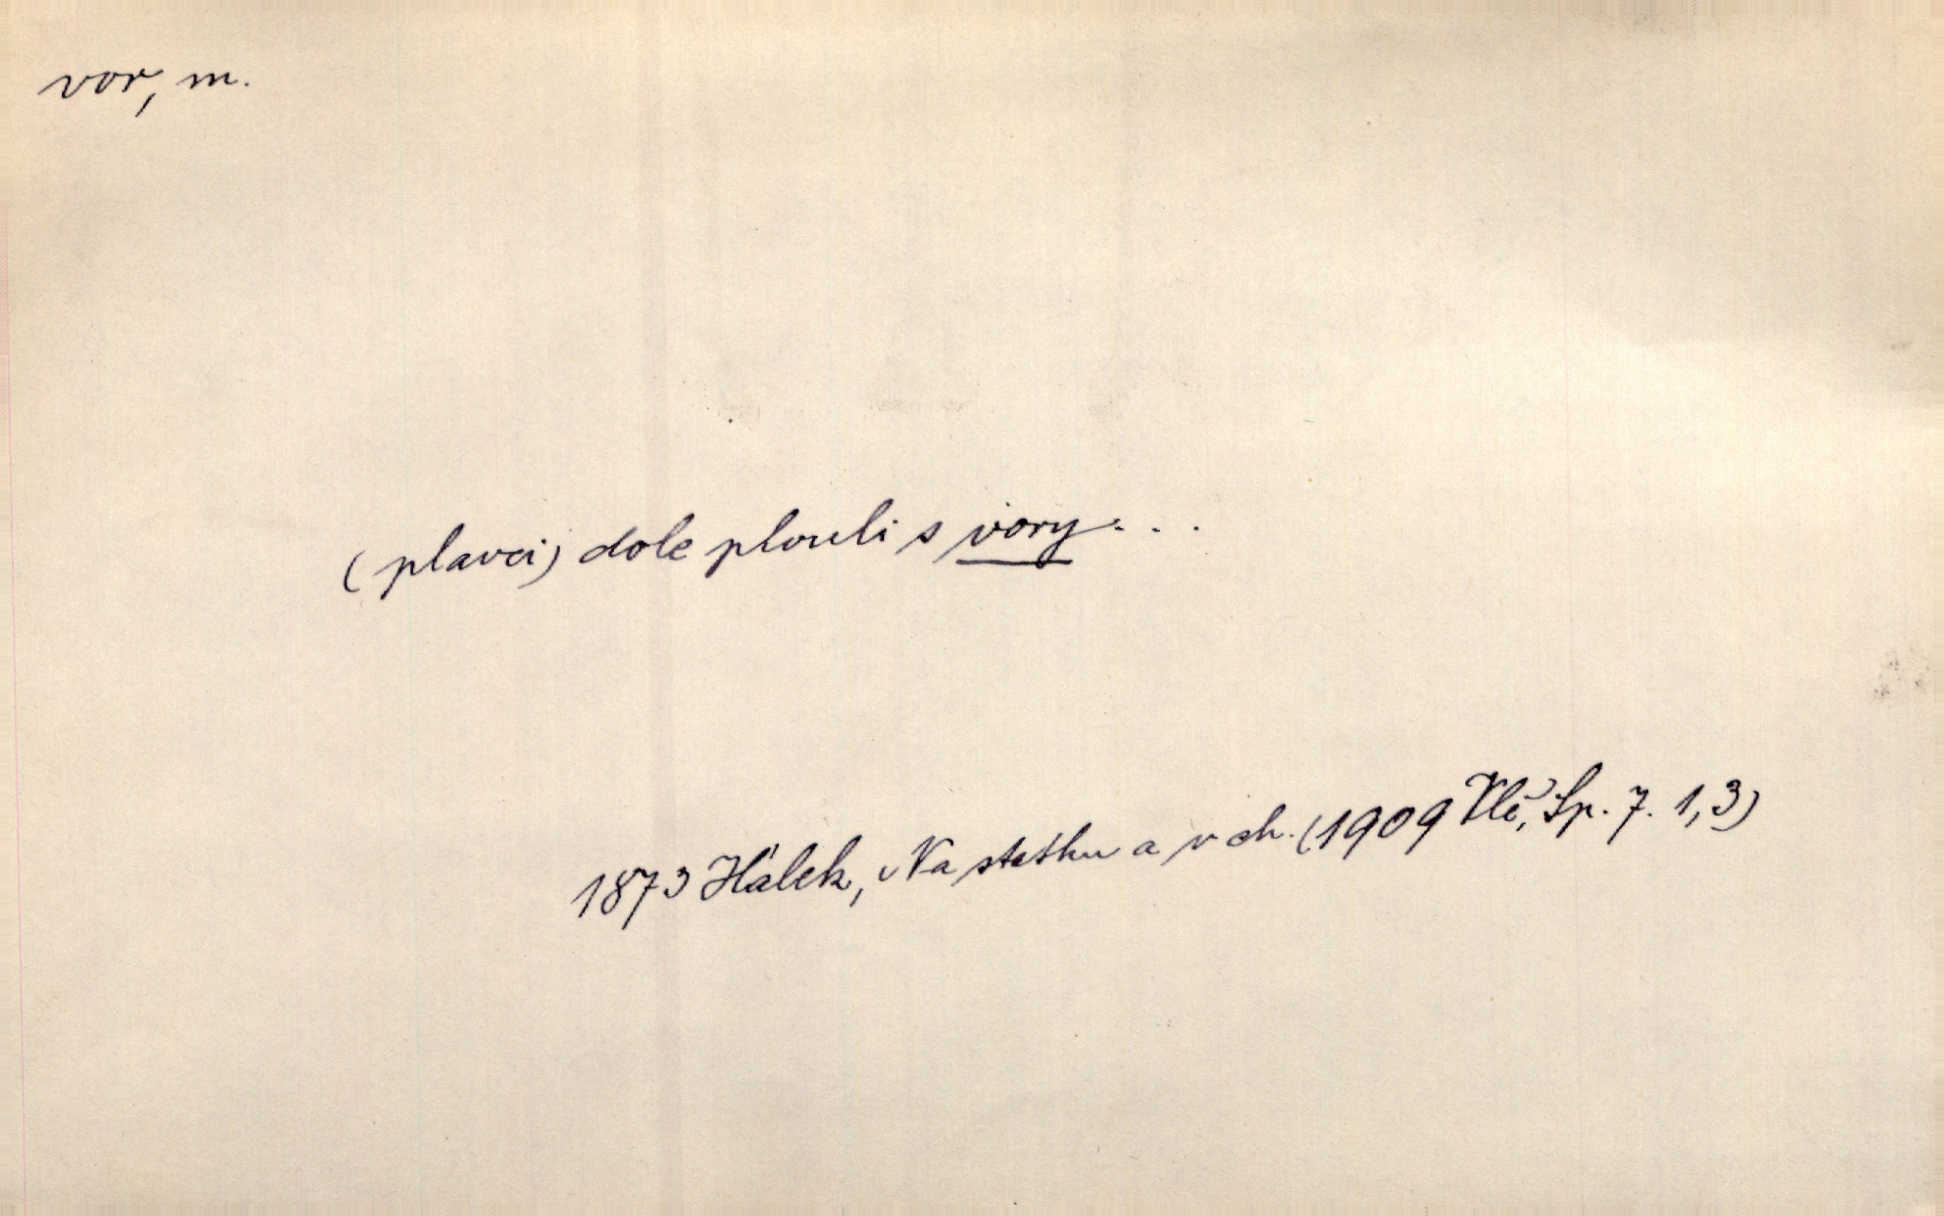 vor, m.
(plavci) dole plouli s vory...
1873 Hálek, Na statku a v ch. (1909 Vlč, Sp. 7. 1,3)